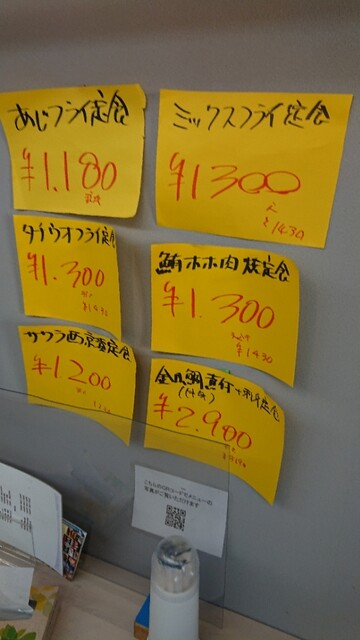 あじフライ定食
¥1,180
ミックスフライ定食
¥1300
¥1430
タチウオフライ定食
¥1.300
¥1430
鮪ホホ肉焼定食
¥1.300
¥1430
サワラ西京焼定食
¥1200
金目鯛煮付
定食
¥2.900
こちらのQRコードでメニューの
写真がご覧いただけます